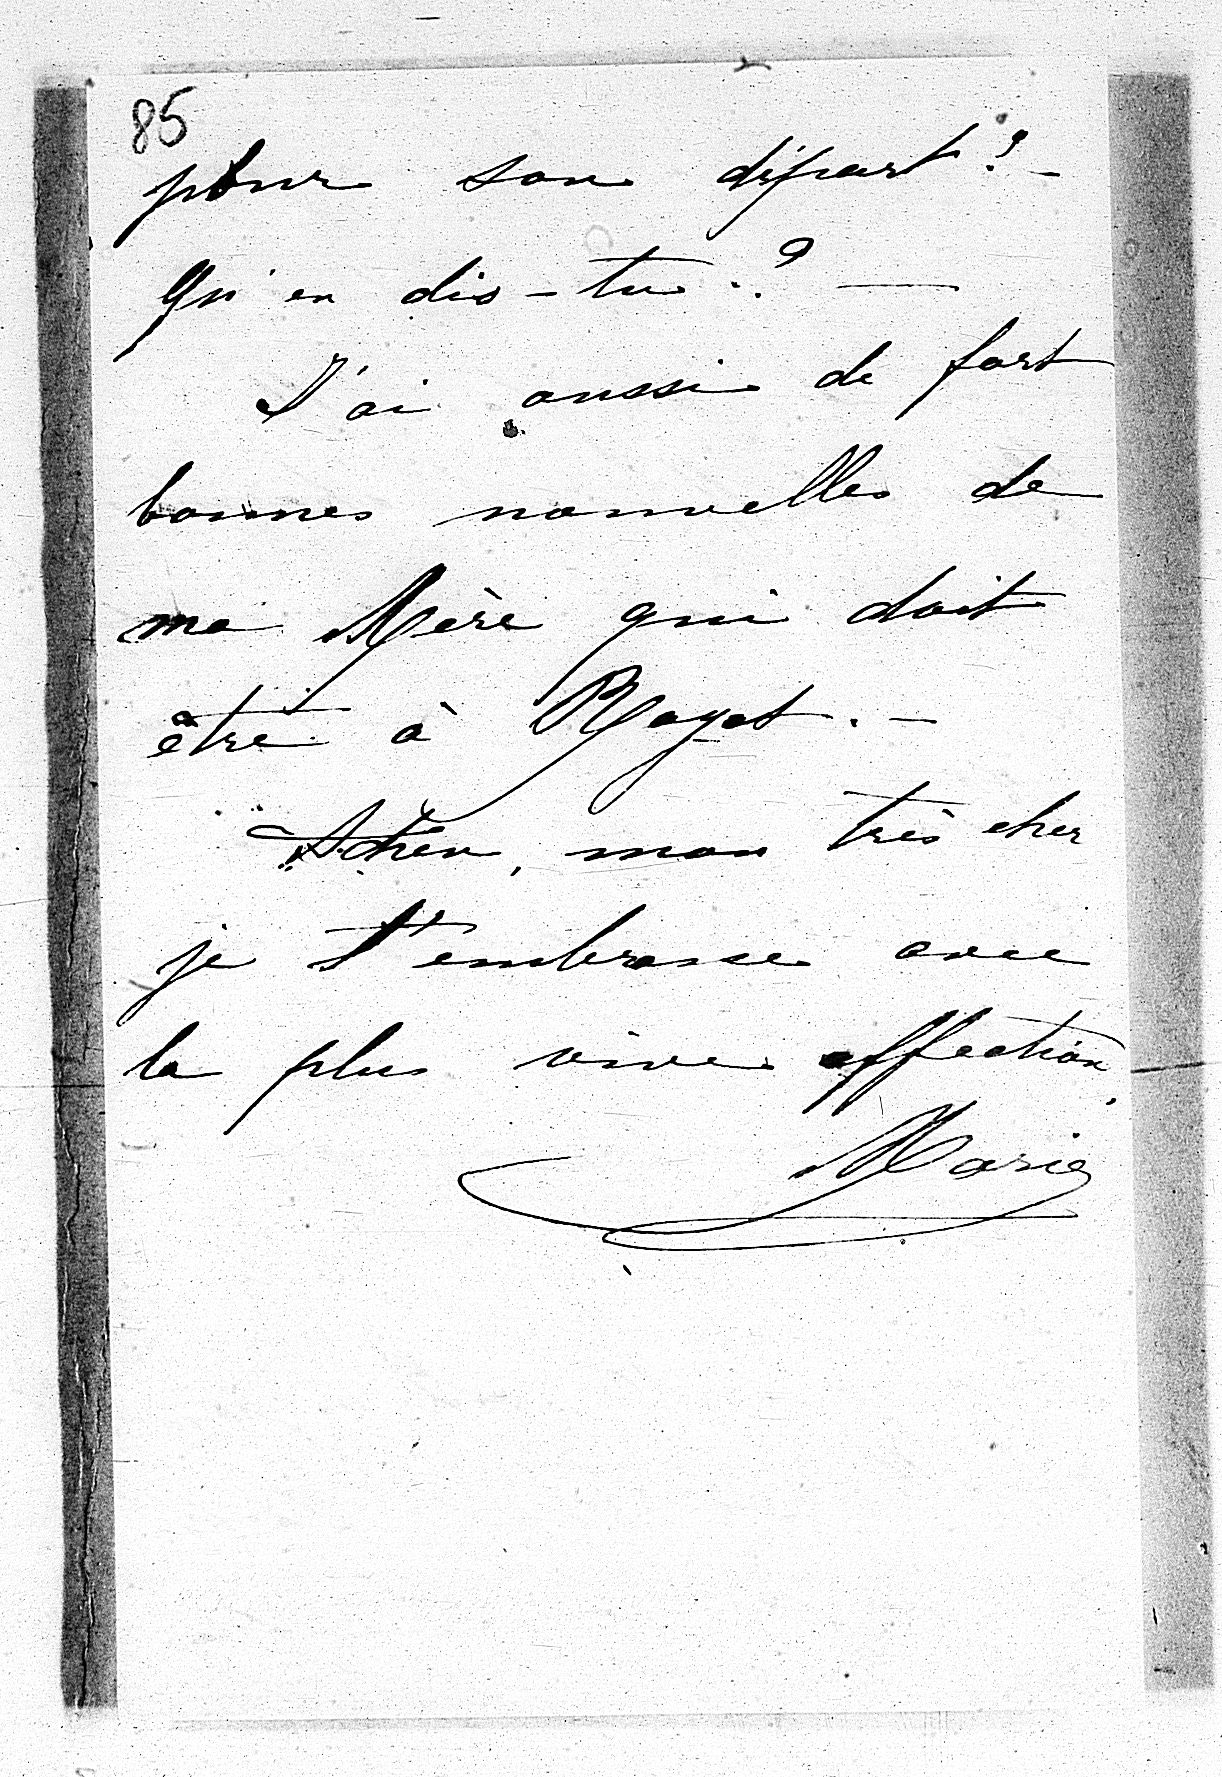 85
pour son départ ? -
Qu'en dis-tu ? —
J'ai aussi de fort
bonnes nouvelles de
ma Mère qui doit
être à Royat. -
Adieu, mon très cher
je t'embrasse avec
la plus vive affection.
Marie